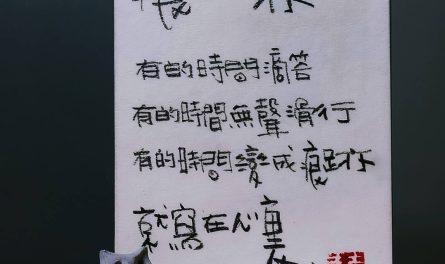 有的時間滴答
有的時間無聲滑行
有的時間變成痕跡
就寫在心裏